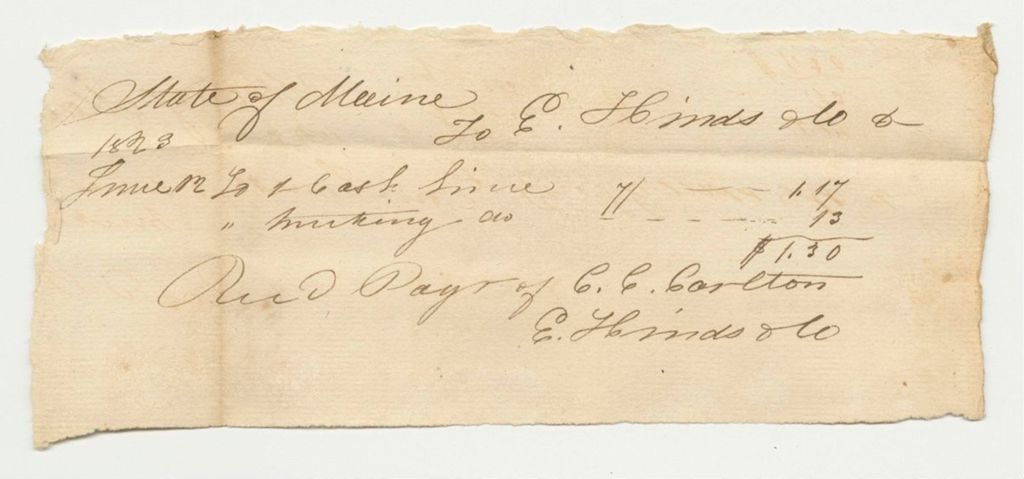 State of Maine
To E. Hinds & Co Dr
1823
June 12 To 1 Cask Lime 7/ 1.17
" trucking do 13
$1.30
Recd Payt of C. C. Carlton
E. Hinds & Co